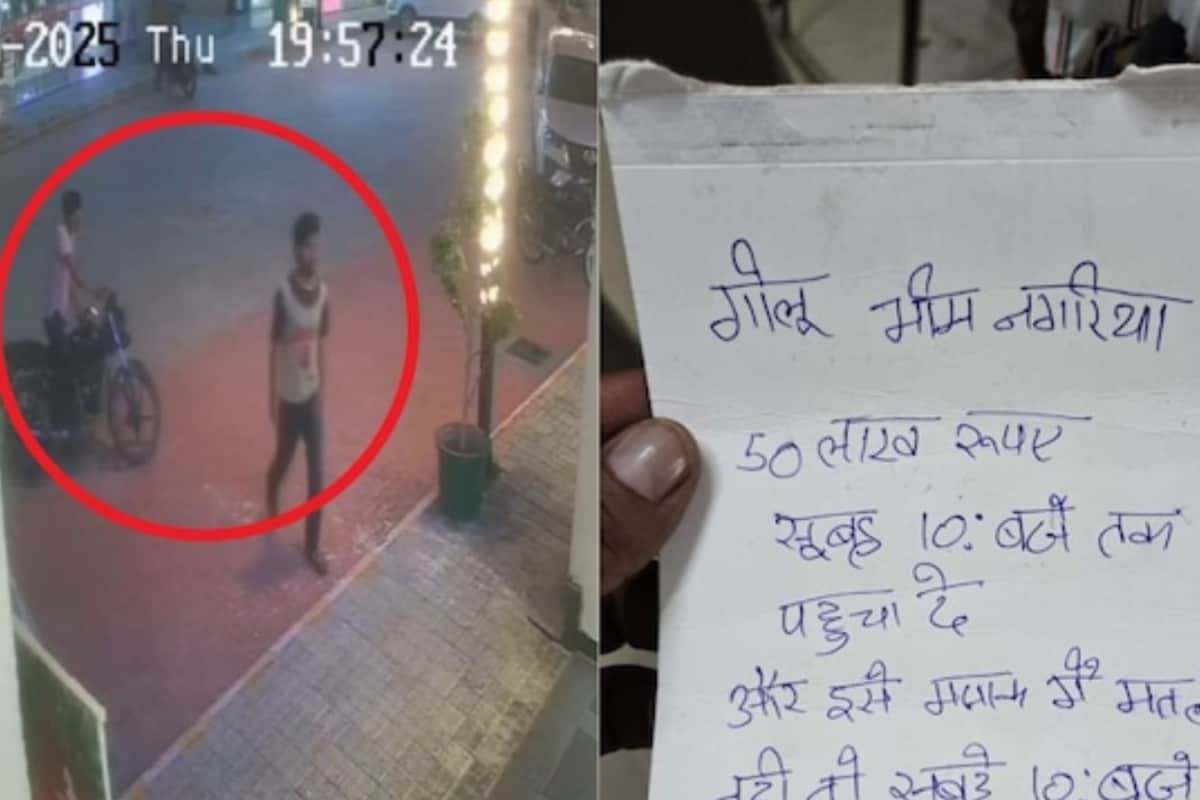 -2025 Thu 19:57:24
गोलू भीम नगरिया
50 लाख रूपए
सूबह 10: बजे तक
पहुचा दे
और इसे मजाक में मत
10: बजे